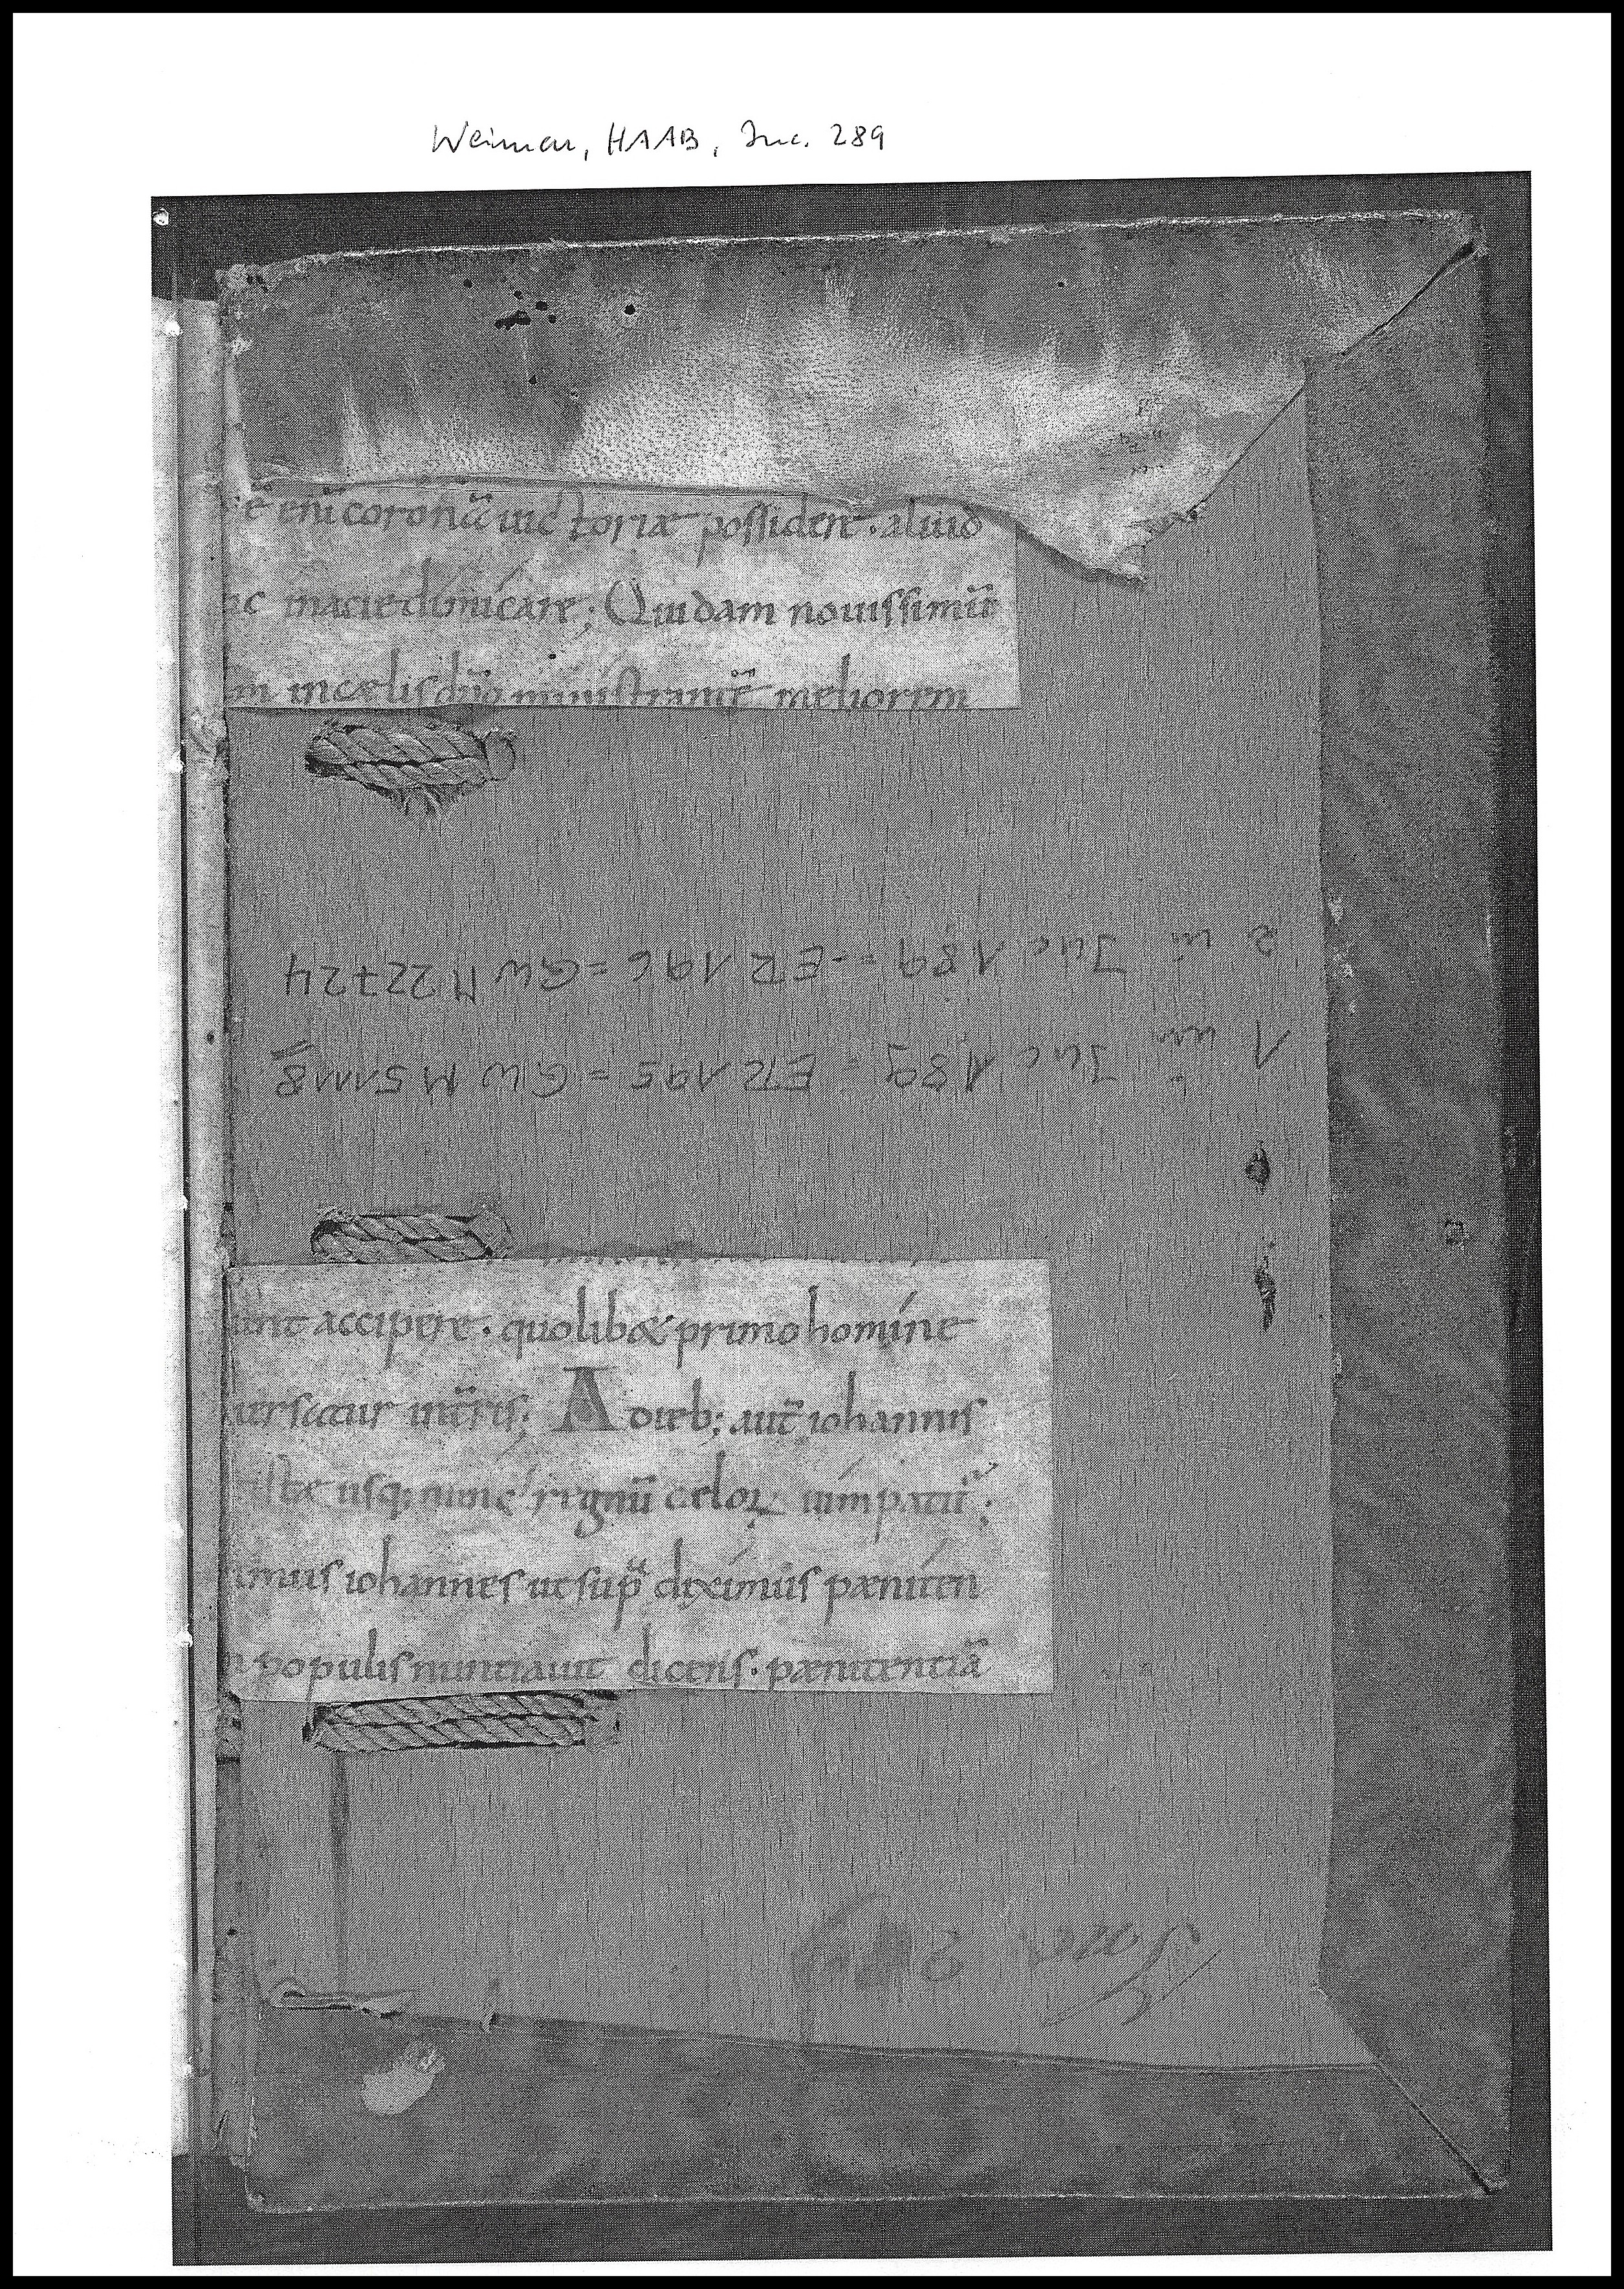 Weimar, HAAB, Inc. 289
ē enī coronā uictoriae possidere · aliud
ac in acie dímícare; Quidam nouissimū
in caelis dn̄o ministrant meliorem
2 in Inc 189 = ER 196 = GW M 22724
1 in Inc 189 = ER 195 = GW M 51118
unt accipere · quolib& primo homíne
uersatur in tr̄is; A dieb; aut̄ iohannis
usq; nunc regnū caeloꝝ uím patit̄ ;
imus iohannes ut sup̄ diximus paeníten
populis nuntiauit dicens · paenitentiā
Inc 289